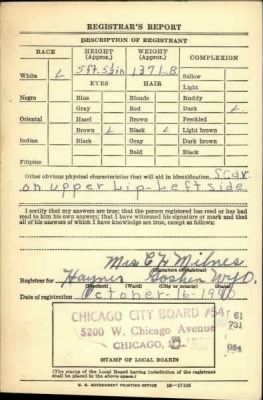 REGISTRAR'S REPORT
DESCRIPTION OF REGISTRANT
RACE HEIGHT (Approx.) WEIGHT (Approx.) COMPLEXION
White ✓ 5 ft. 5½ in 137 LB Sallow
EYES HAIR Light
Negro Blue Blonde Ruddy
Gray Red Dark ✓
Oriental Hazel Brown Freckled
Brown ✓ Black ✓ Light brown
Indian Black Gray Dark brown
Bald Black
Filipino
Other obvious physical characteristics that will aid in identification Scar
on upper Lip-Left side
I certify that my answers are true; that the person registered has read or has had
read to him his own answers; that I have witnessed his signature or mark and that
all of his answers of which I have knowledge are true, except as follows:
Mrs E H Milnes
(Signature of registrar)
Registrar for Haynes Goshen Wyo.
(Precinct) (Ward) (City or county) (State)
Date of registration October-16-1940
CHICAGO CITY BOARD
5200 W. Chicago Avenue
CHICAGO,
STAMP OF LOCAL BOARD
(The stamp of the Local Board having jurisdiction of the registrant
shall be placed in the above space.)
U. S. GOVERNMENT PRINTING OFFICE 16-17105